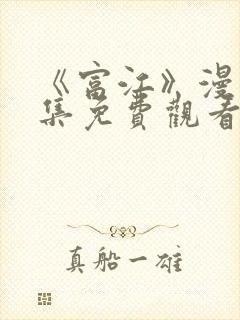 《富江》漫
集免費觀看
真船一雄